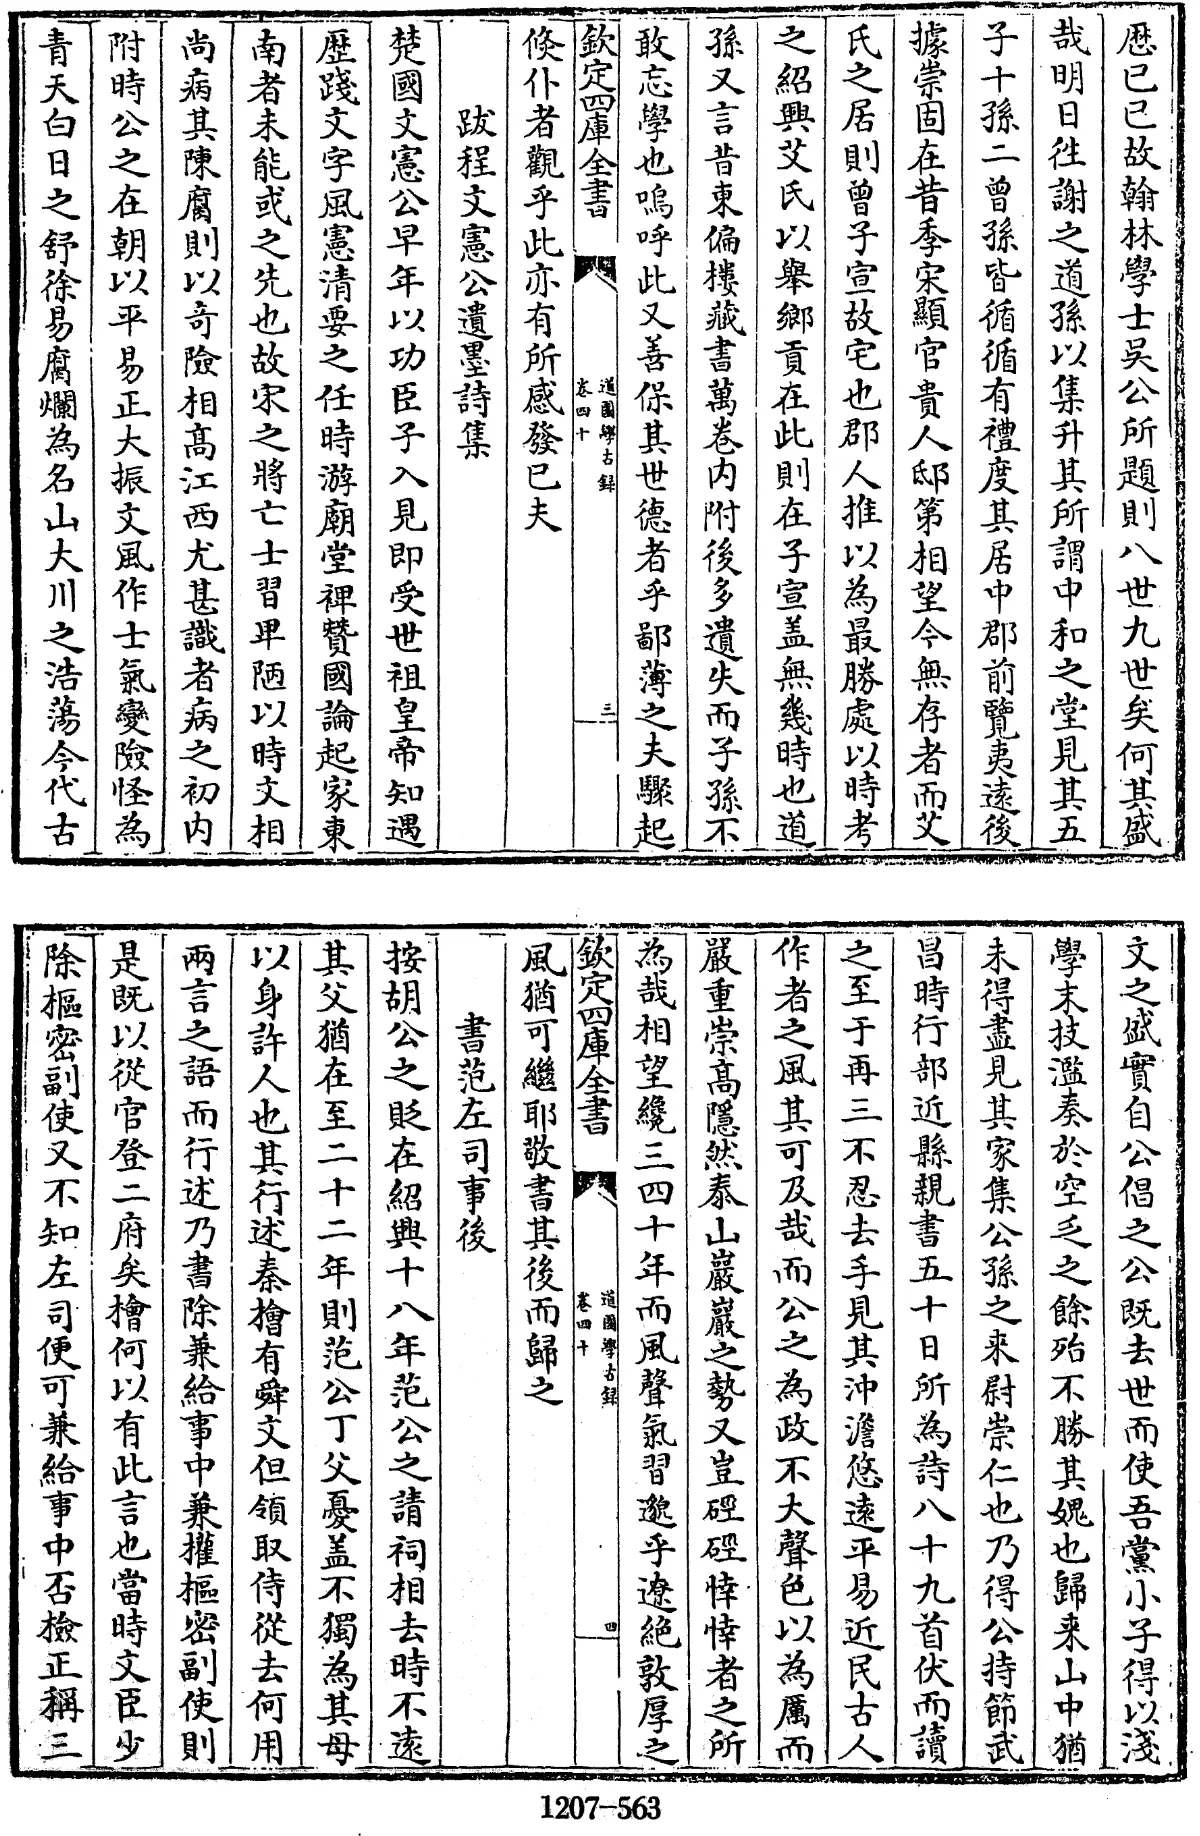 歴已巳故翰林學士吳公所題則八世九世矣何其盛
哉明日徃謝之道孫以集升其所謂中和之堂見其五
子十孫二曾孫皆循循有禮度其居中郡前覽夷逺後
據崇固在昔季宋顯官貴人邸第相望今無存者而艾
氏之居則曾子宣故宅也郡人推以為最勝處以時考
之紹興艾氏以舉鄉貢在此則在子宣盖無幾時也道
孫又言昔東偏樓藏書萬卷内附後多遺失而子孫不
敢忘學也嗚呼此又善保其世德者乎鄙薄之夫驟起
欽定四庫全書
道園學古録
卷四十
三
倐仆者觀乎此亦有所感發已夫
跋程文憲公遺墨詩集
楚國文憲公早年以功臣子入見即受世祖皇帝知遇
歴踐文字風憲清要之任時游廟堂裨贊國論起家東
南者未能或之先也故宋之將亡士習卑陋以時文相
尚病其陳腐則以竒險相髙江西尤甚識者病之初内
附時公之在朝以平易正大振文風作士氣變險怪為
青天白日之舒徐易腐爛為名山大川之浩蕩今代古
文之盛實自公倡之公既去世而使吾黨小子得以淺
學末技濫奏於空乏之餘殆不勝其媿也歸来山中猶
未得盡見其家集公孫之来尉崇仁也乃得公持節武
昌時行部近縣親書五十日所為詩八十九首伏而讀
之至于再三不忍去手見其沖澹悠逺平易近民古人
作者之風其可及哉而公之為政不大聲色以為厲而
嚴重崇髙隱然泰山巖巖之勢又豈硜硜悻悻者之所
為哉相望纔三四十年而風聲氣習邈乎遼絶敦厚之
欽定四庫全書
道園學古録
卷四十
四
風猶可繼耶敬書其後而歸之
書范左司事後
按胡公之貶在紹興十八年范公之請祠相去時不逺
其父猶在至二十二年則范公丁父憂盖不獨為其母
以身許人也其行述秦檜有舜文但領取侍從去何用
兩言之語而行述乃書除兼給事中兼權樞密副使則
是既以從官登二府矣檜何以有此言也當時文臣少
除樞密副使又不知左司便可兼給事中否檢正稱三
1207-563